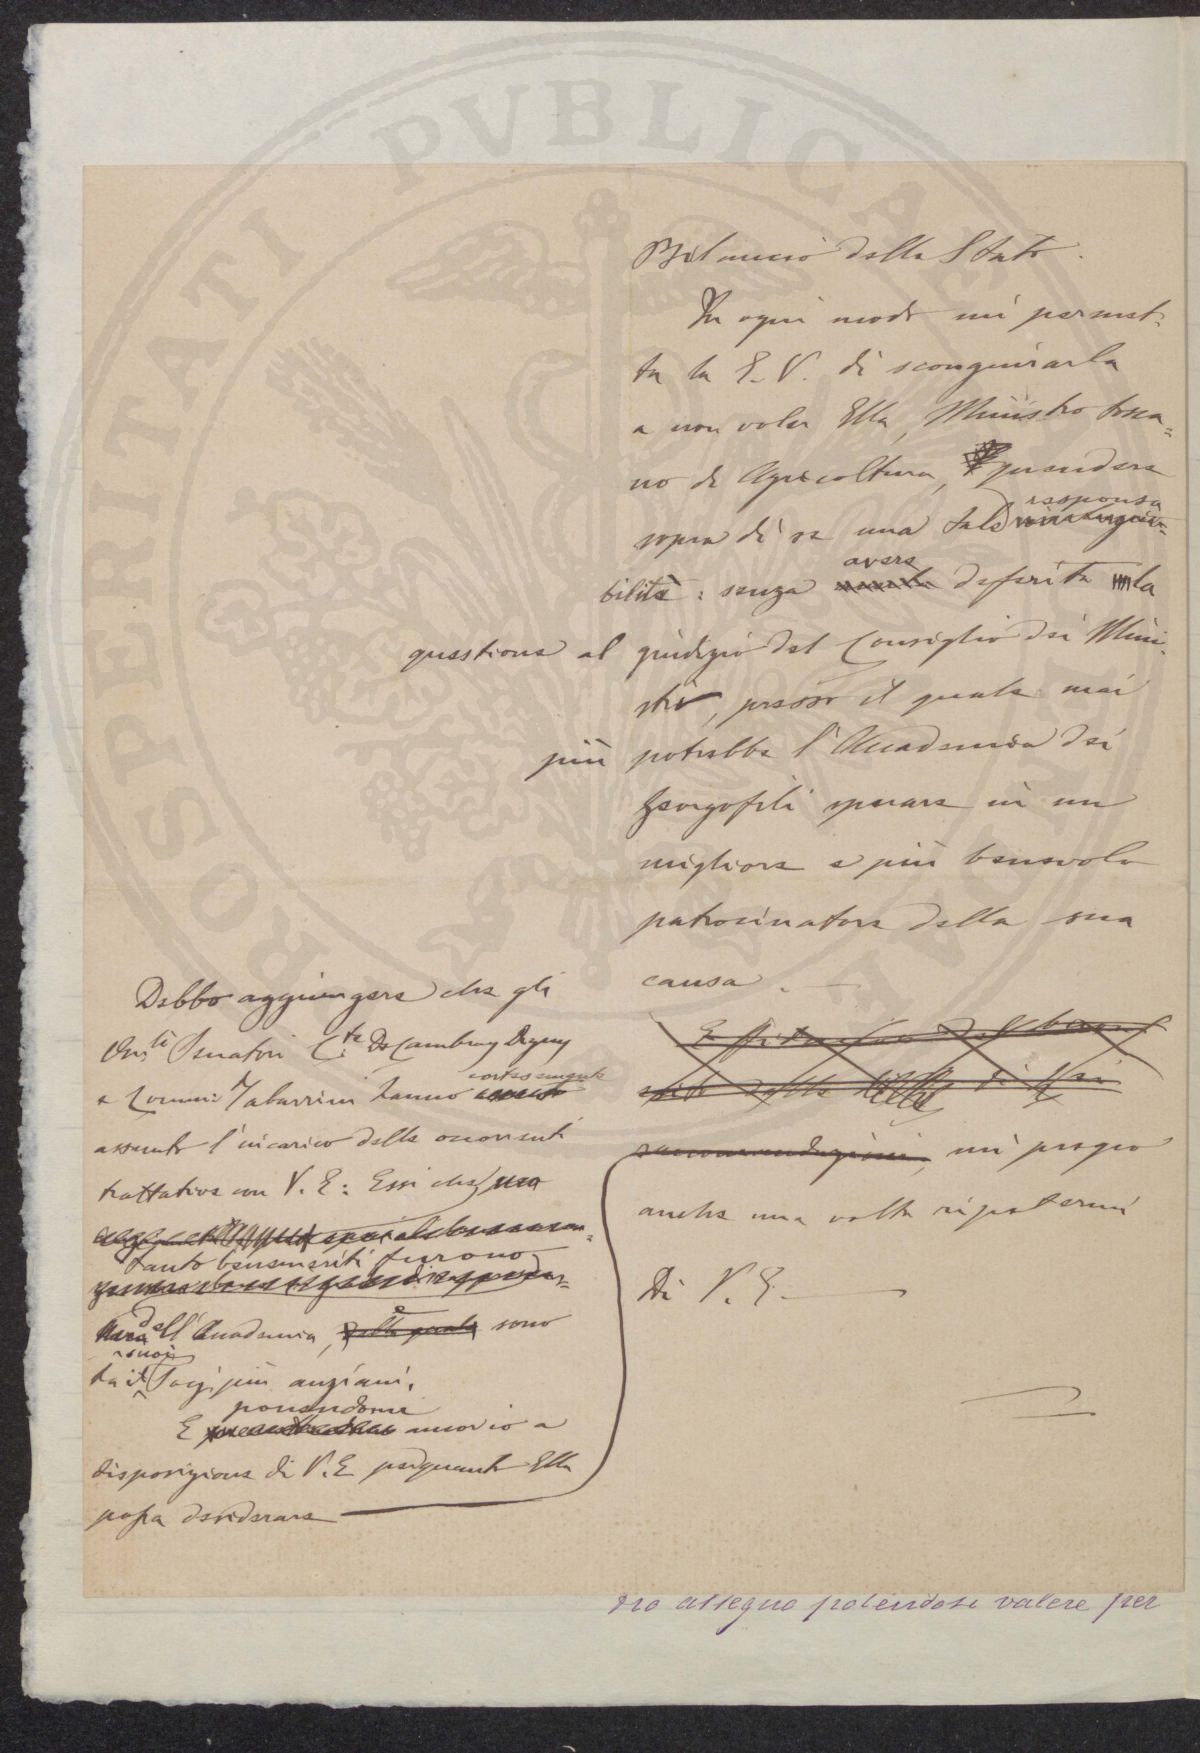 Bilancio dello Stato.
In ogni modo mi permet-
ta la E. V. di scongiurarla
a non voler Ella, Ministro tosca=
no di Agricoltura, prendere
sopra di se una tale responsa
bilità: senza avere deferita la
questione al giudizio del Consiglio dei Mini-
stri, presso il quale mai
più potrebbe l'Accademia dei
Georgofili sperare in un
migliore e più benevolo
patrocinatore della sua
causa. —
raccomandazioni, mi pregio
anche una volta ripetermi
Di V. E. —
Debbo aggiungere che gli
On.li Senatori C.te De Cambray Digny
e Comm: Tabarrini hanno cortesemente
assunto l'incarico delle occorrenti
trattative con V. E: Essi che
tanto benemeriti furono
dell'Accademia, e sono
tra i suoi Socj più anziani.
E ponendomi ancor io a
disposizione di V. E. per quanto Ella
possa desiderare —
dro assegno potendosi valere per
PROSPERITATI PVBLICAE